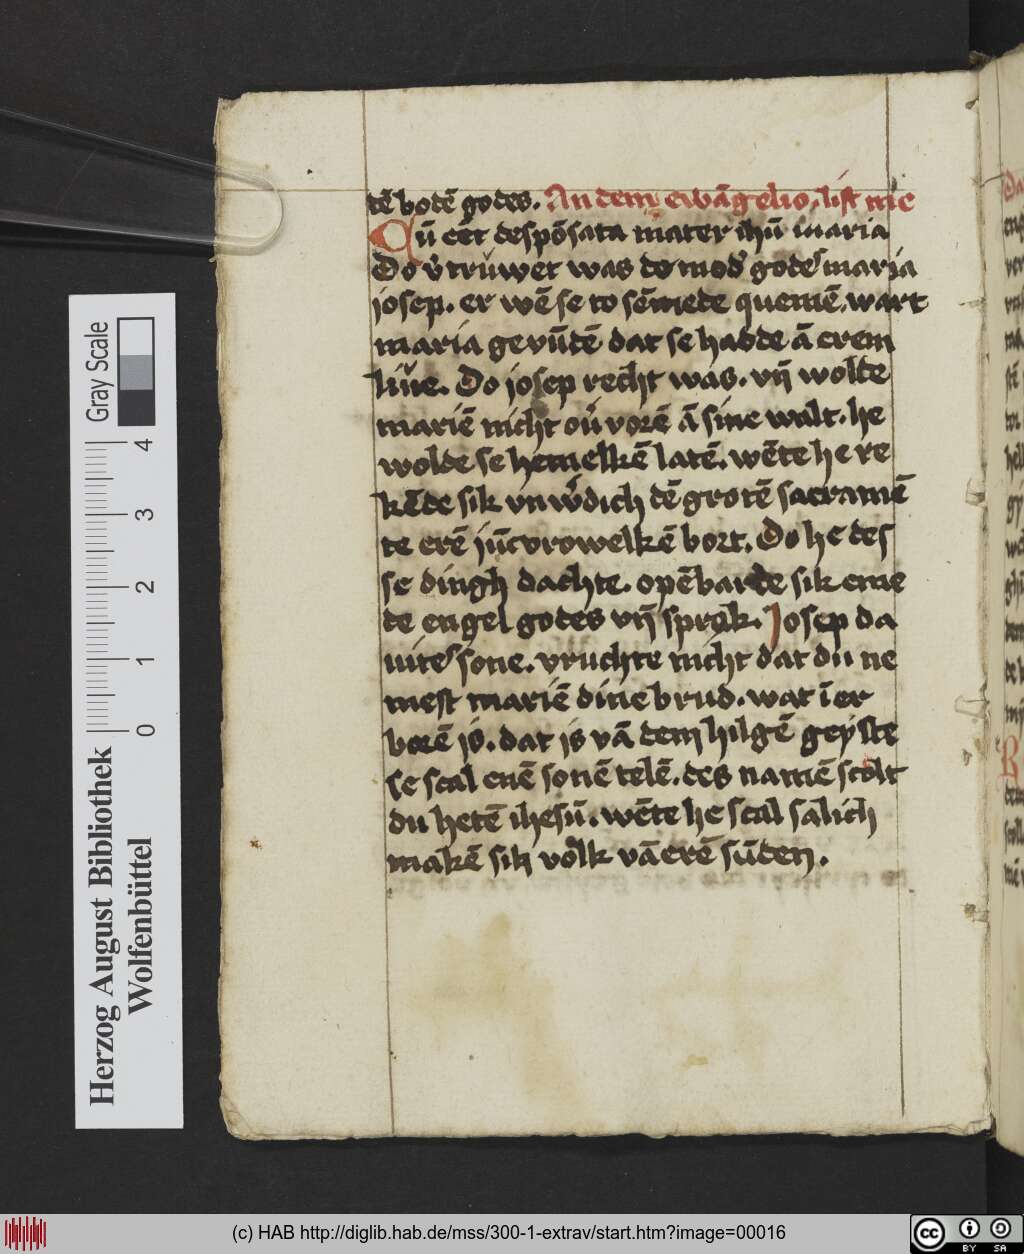 tē botē godes. An dem ewāgelio. list me
Cū eet despōsata mater ihū maria
Do v̓truwet was de mod̓ godes maria
josep. er wē se to sēmede quemē. wart
maria gevūdē dat se hadde ā erem
liue. Do josep recht was. vn̄ wolde
mariē nicht ou̓ vorē ā sine walt. he
wolde se hemelkē latē. wēte he re
kēde sik vnw̓dich dē grotē sacramē
te erē jūcvrowelkē bort. Do he des
se dingh dachte. opēbarde sik eme
de engel godes vn̄ sprak. Josep da
uites sone. vruchte nicht dat du ne
mest mariē dine brud. wat ī er
borē is. dat is vā dem hilgē geyste
se scal enē sonē telē. des namē scolt
du hetē ihesū. wēte he scal salich
makē sik volk vā erē sūden.
Herzog August Bibliothek
Wolfenbüttel
Gray Scale
0 1 2 3 4
(c) HAB http://diglib.hab.de/mss/300-1-extrav/start.htm?image=00016
cc BY SA